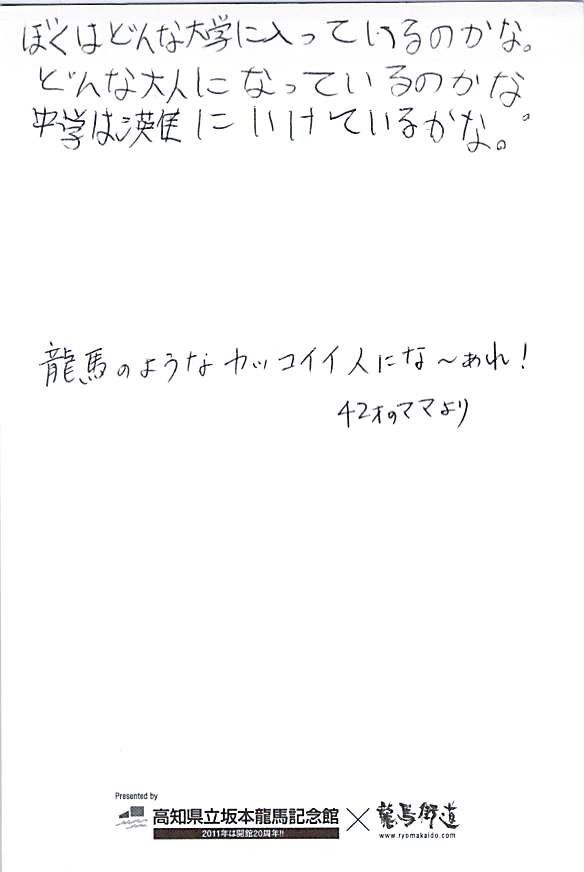 ぼくはどんな大学に入っているのかな。
どんな大人になっているのかな
中学は漢隼にいけているかな。
龍馬のようなカッコイイ人にな〜あれ!
42才のママより
Presented by
高知県立坂本龍馬記念館×龍馬街道
2011年は開館20周年!!
www.ryomakaido.com